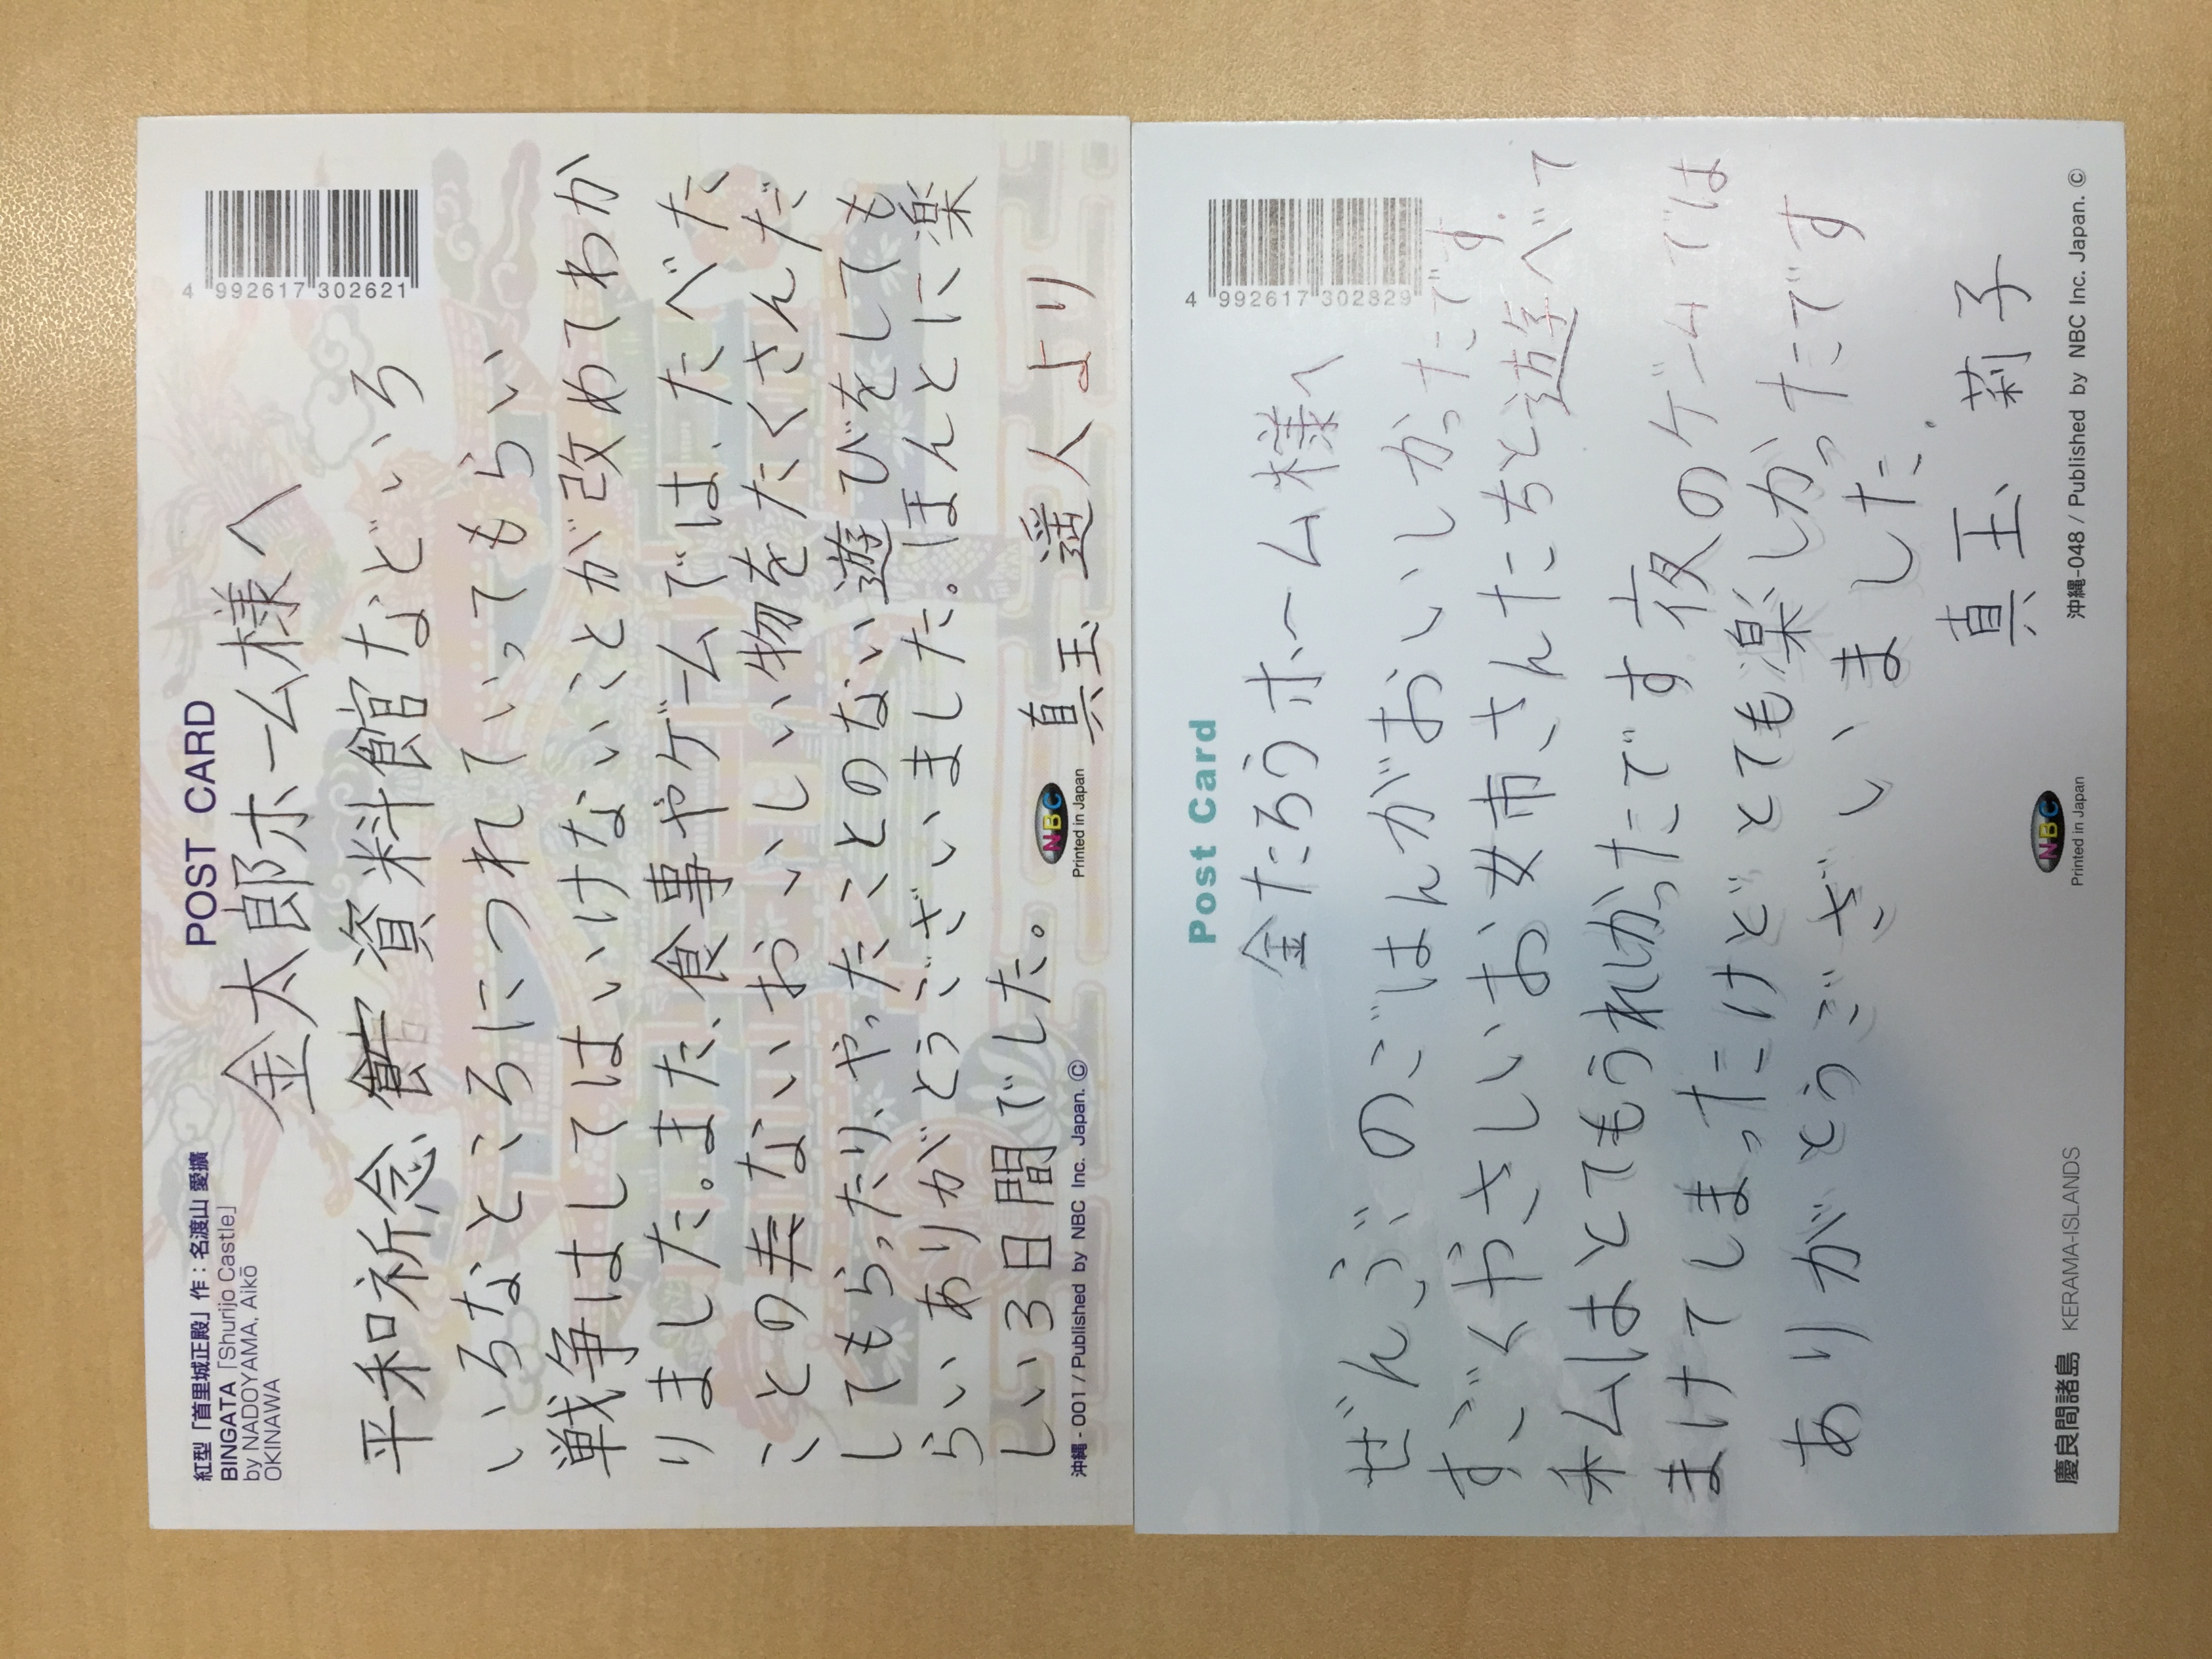 紅型「首里城正殿」作:名渡山 愛擴
BINGATA「Shurijo Castle」
by NADOYAMA, Aikō
OKINAWA
POST CARD
4 992617 302621
金太郎ホーム様へ
平和祈念 資料館などいろ
いろなところにつれていってもらい
戦争はしてはいけないことが改めてわか
りました。また、食事やゲームでは、たべた
ことのないおいしい物をたくさんだ
してもらったり、やったことのない遊びをしても
らいありがとうございました。ほんとに楽
しい3日間でした。
真玉 遥人より
NBC
Printed in Japan
沖縄-001 / Published by NBC Inc. Japan. ©
Post Card
4 992617 302829
金たろうホーム様へ
ぜんぶのごはんがおいしかったです。
すごくやさしいお姉さんたちと遊べて
私はとてもうれしかったです夜のゲームでは
まけてしまったけどとても楽しかったです
ありがとうございました.
真玉 莉子
NBC
Printed in Japan
慶良間諸島 KERAMA-ISLANDS
沖縄-048 / Published by NBC Inc. Japan. ©